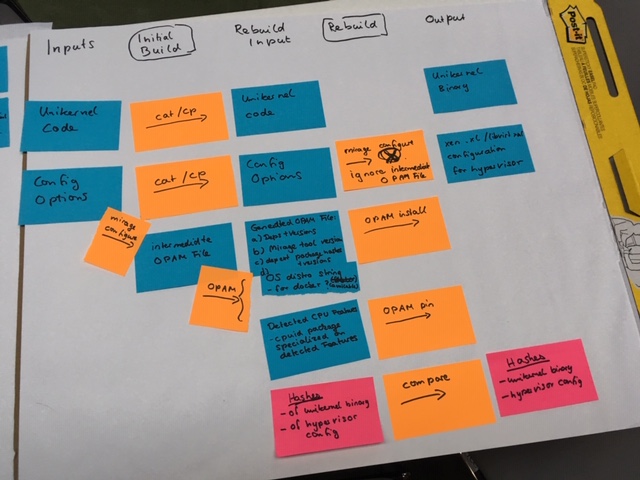 Inputs
Initial
Build
Rebuild
Input
Rebuild
Output
Unikernel
Code
cat/cp
Unikernel
code
Unikernel
Binary
Config
Options
cat/cp
Config
Options
mirage configure
ignore intermediate
OPAM File
configuration
for hypervisor
mirage
configure
intermediate
OPAM File
OPAM
Generated OPAM File:
a) Deps + Versions
b) Mirage tool version
c) depext package names
+ versions
d)
OS distro string
- for docker
OPAM install
Detected CPU Features
- cpuid package
specialized on
detected features
OPAM pin
Hashes
- of unikernel binary
- of hypervisor
config
compare
Hashes
- unikernel binary
- hypervisor config
Post-it